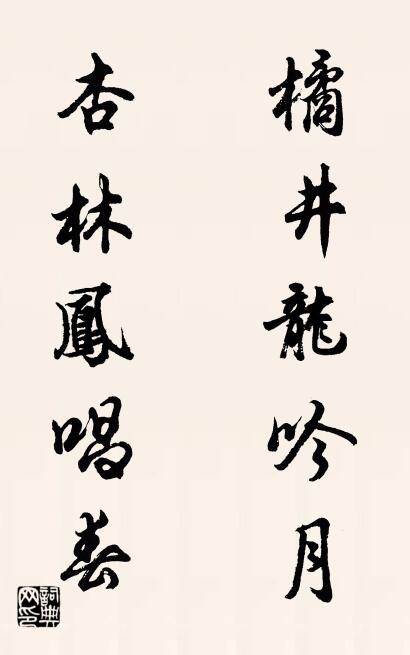 橘井龍吟月
杏林鳳唱春
詞典网印